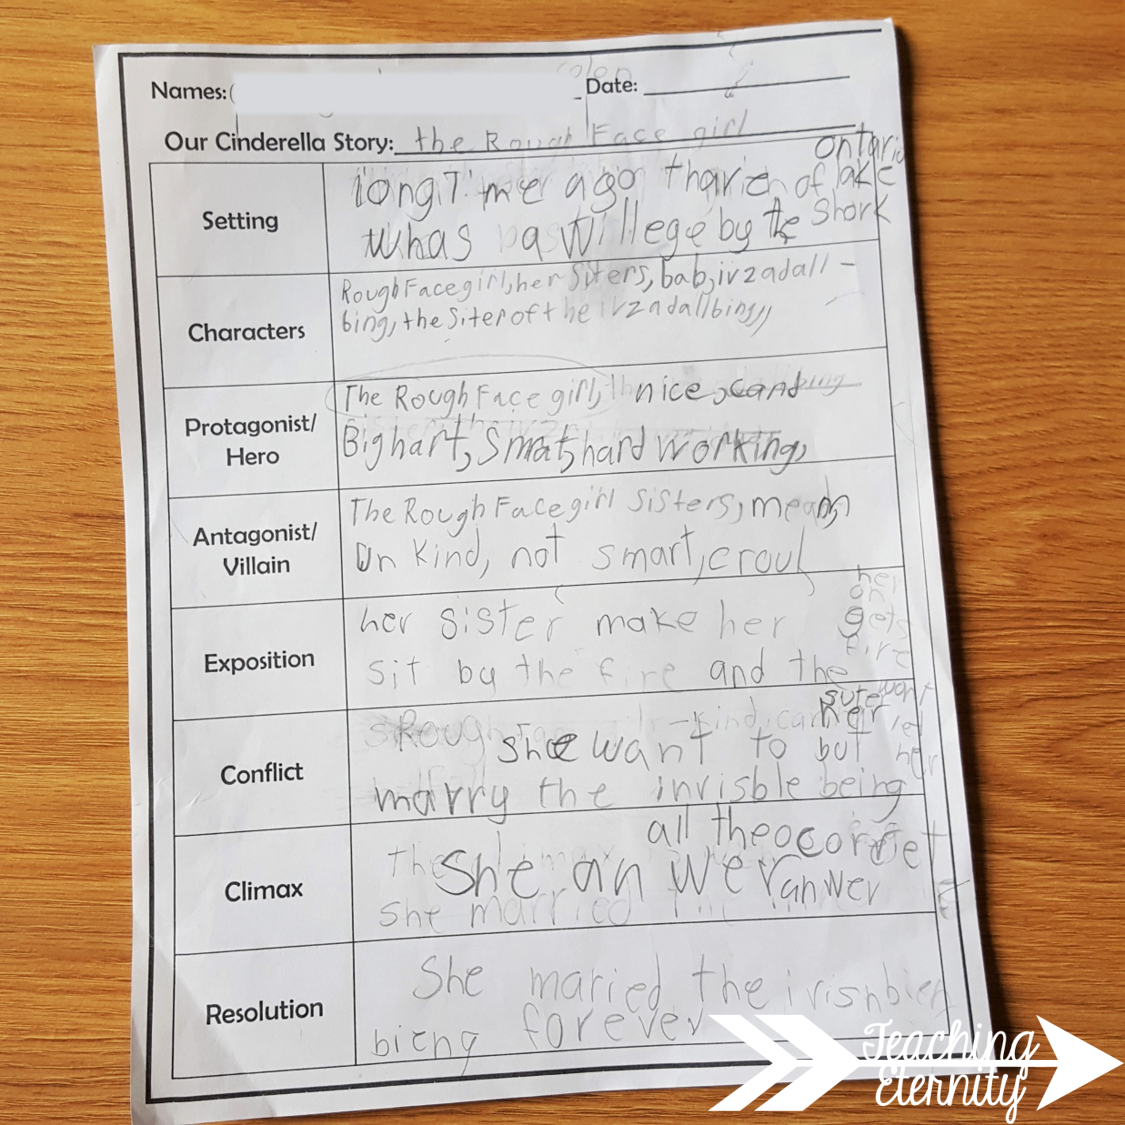 Names:
Date:
Our Cinderella Story: the Rough Face girl
Setting
ontario
longTime ago thare of lake
whas a willege by the Shork
Characters
Rough Face girl, her Siters, bab, ivzadall-
bing, the Siter of the ivzadallbing,,
Protagonist/
Hero
The Rough Face girl, nice,
Big hart, Smat, hard working,
Antagonist/
Villain
The Rough Face girl Sisters, mean,
Un Kind, not smart, croul
Exposition
her sister make her gets
sit by the fire and the fire
on
her
Conflict
she want to but her
marry the invrisble being
sute wont let her
Climax
all the corret
She an wer anwer
she married
Resolution
She maried the irishbien
bieng forever
Teaching
Eternity